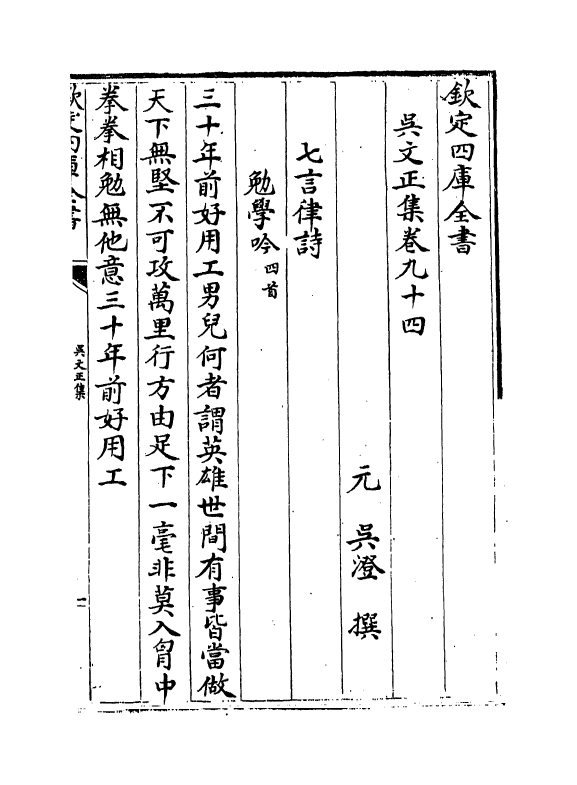 欽定四庫全書
吳文正集卷九十四
元 吳澄 撰
七言律詩
勉學吟四首
三十年前好用工男兒何者謂英雄世間有事皆當做
天下無堅不可攻萬里行方由足下一毫非莫入胷中
拳拳相勉無他意三十年前好用工
欽定四庫全書
吳文正集
一